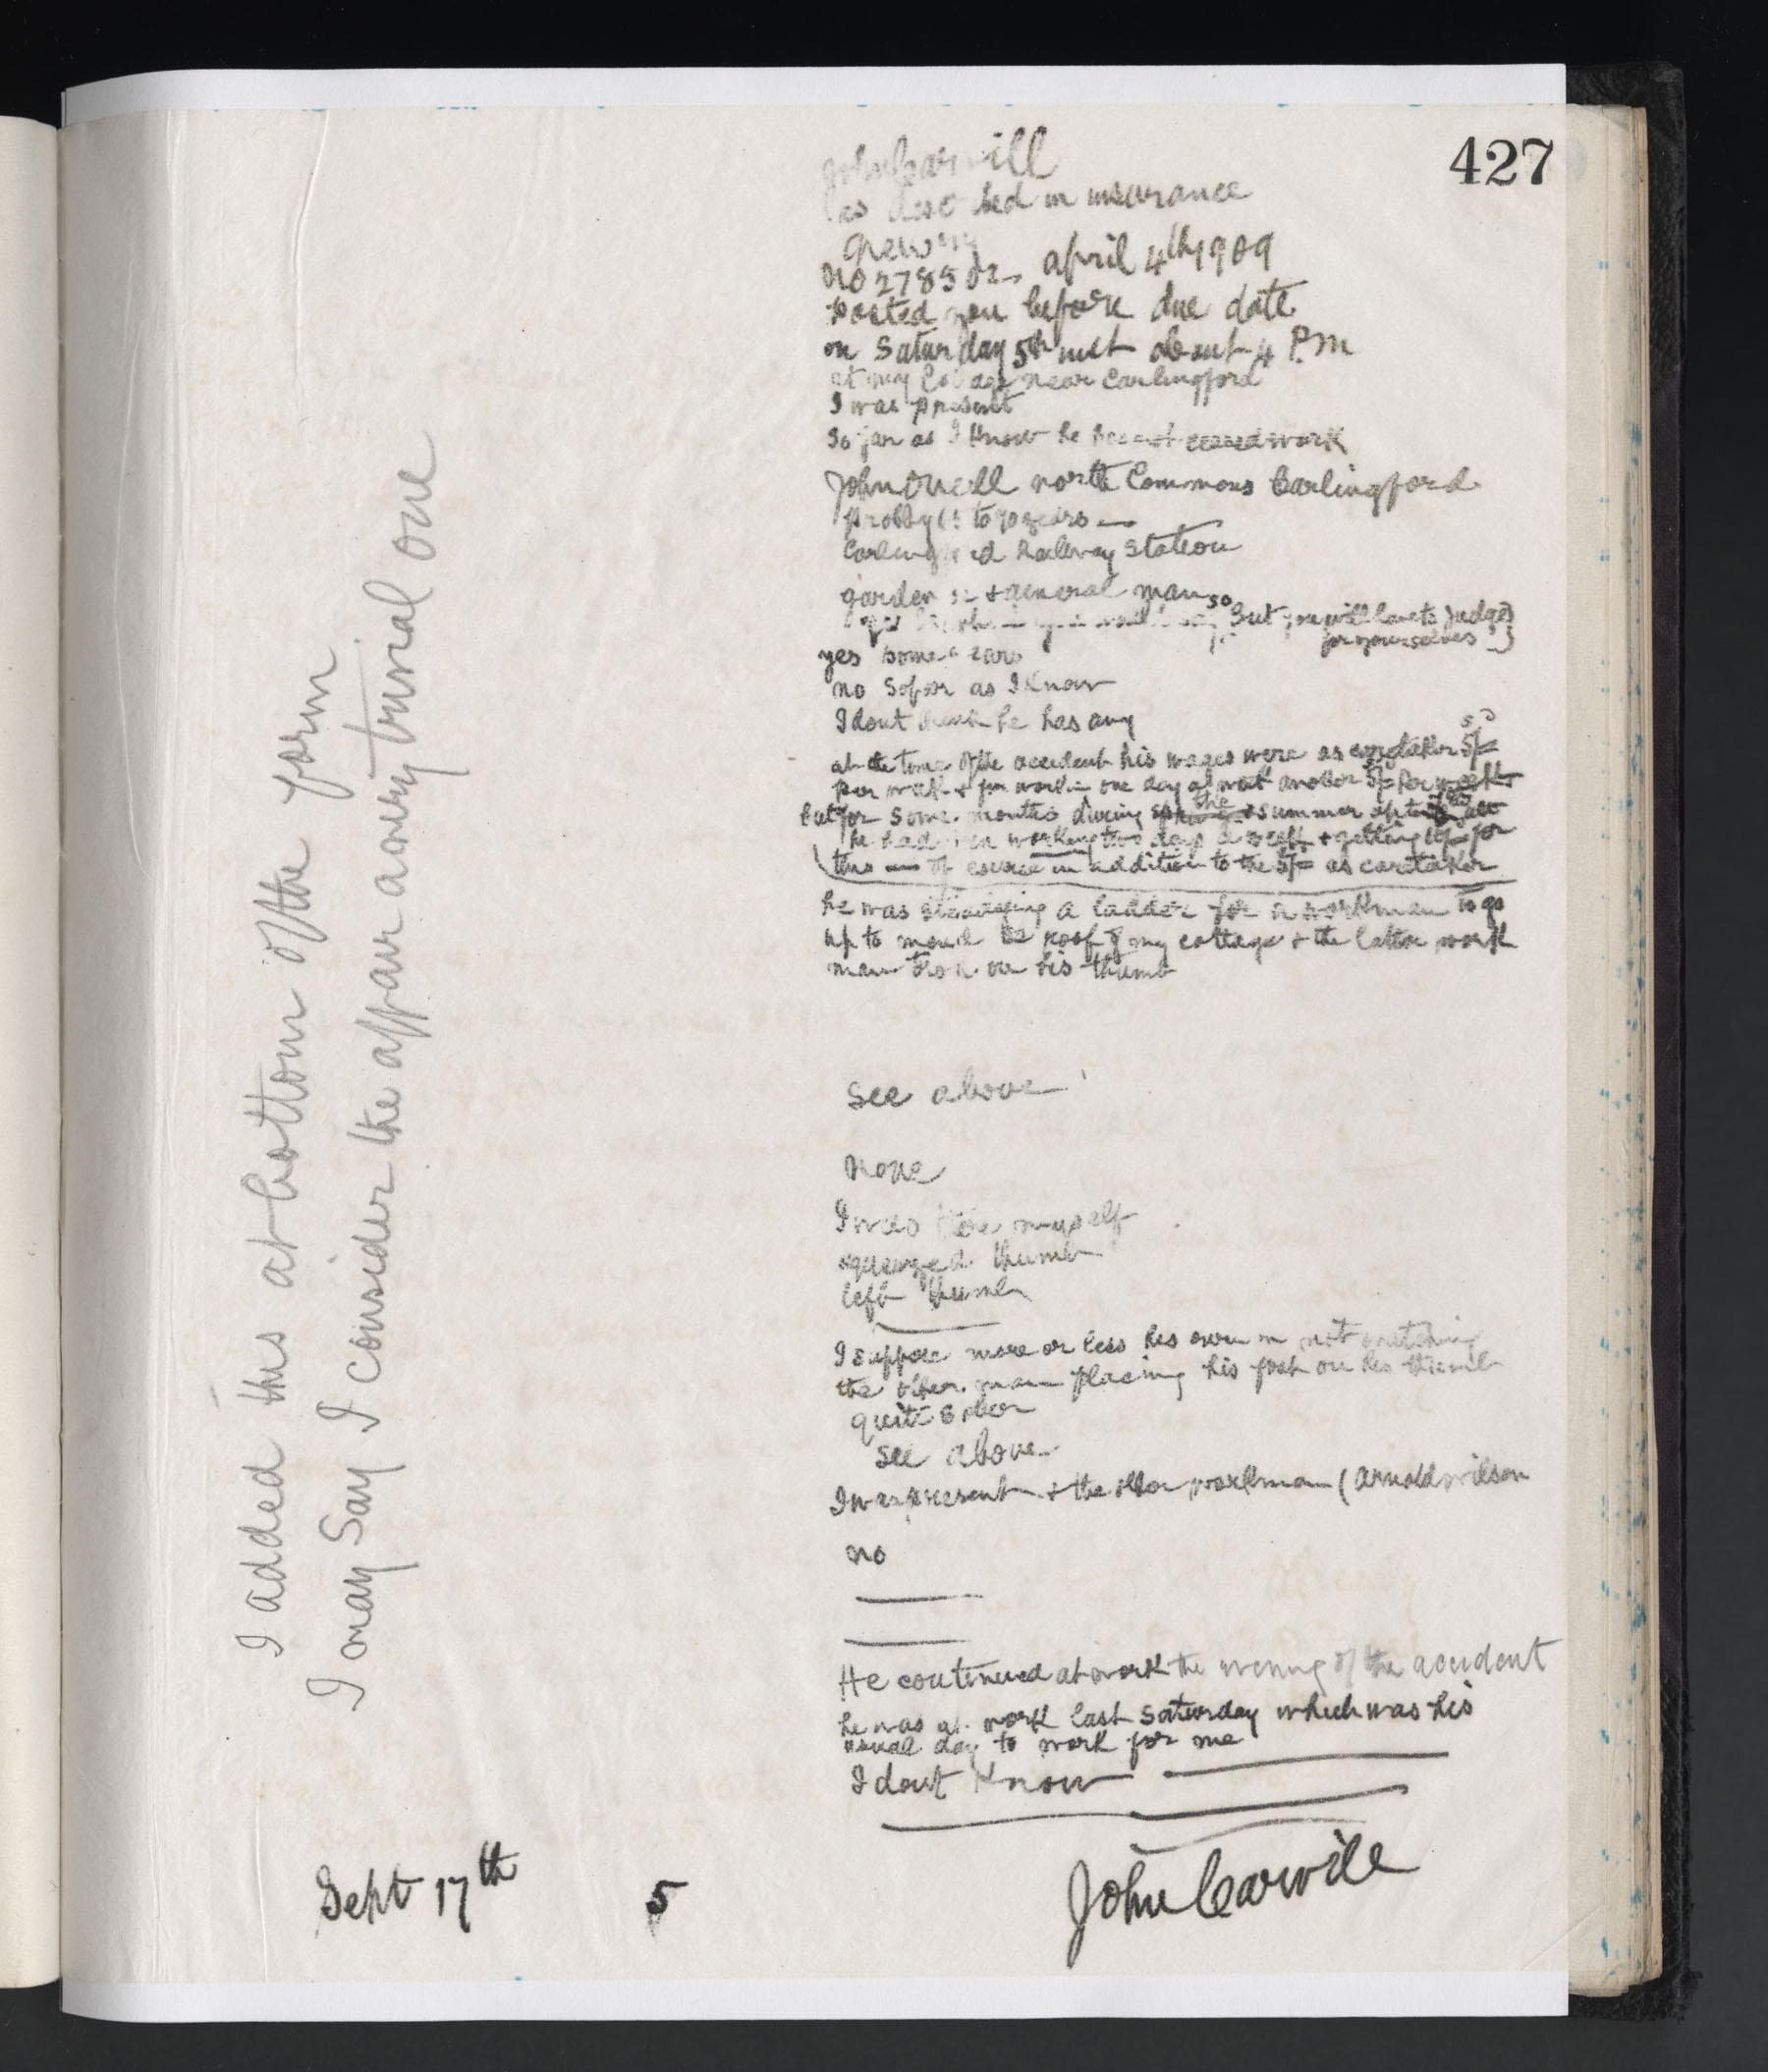 427
John Carvill
as described in insurance
Newry
No 278502, april 4th 1909
posted you before due date
on Saturday 5th inst about 4 P.m
at my Cottage near Carlingford
I was present
So far as I Know he has not ceased work
John Oneill north Commons Carlingford
probbly 65 to 70 years —
Carlingford Railway Station
gardener + general man
so But you will have to judge
for yourselves
yes some years
no So far as I Know
I dont think he has any
at the time of the accident his wages were as caretaker 5/=
per week + for working one day a week another 5/= per week
but for some months during the summer up to
he had been working two days a week + getting 10/= for
this — of course in addition to the 5/= as caretaker
he was steadying a ladder for a workman to go
up to mend the roof of my cottage + the latter work
man trod on his thumb
See above
None
I was there myself
squeezed thumb
left thumb
I suppose more or less his own in not watching
the other man placing his foot on his thumb
quite sober
see above
I was present + the other workman (Arnold Wilson
no
He continued at work the evening of the accident
he was at work last Saturday which was his
usual day to work for me
I dont Know
John Carvill
Sept 17th 5
I added this at bottom of the form
I may Say I consider the affair a very trivial one